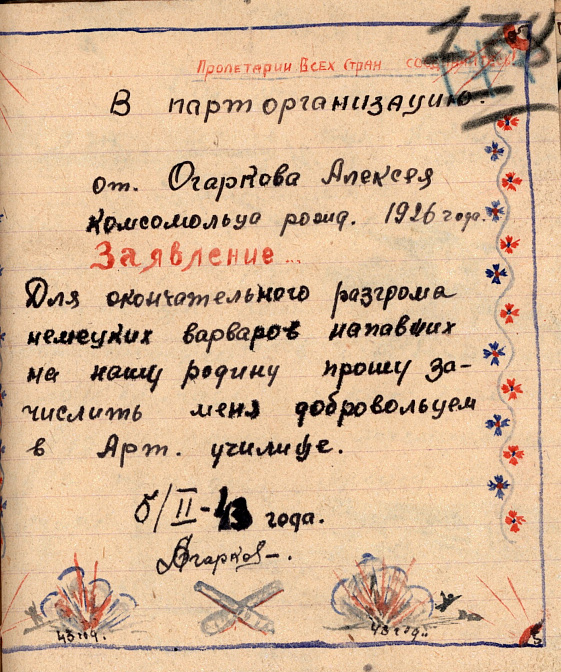 Пролетарии Всех Стран соединяйтесь!
В парторганизацию.
от. Огаркова Алексея
комсомольца рожд. 1926 года.
Заявление...
Для окончательного разгрома
немецких варваров напавших
на нашу родину прошу за-
числить меня добровольцем
в Арт. училище.
6/II-43 года.
Огарков-.
43 год. 43 год.